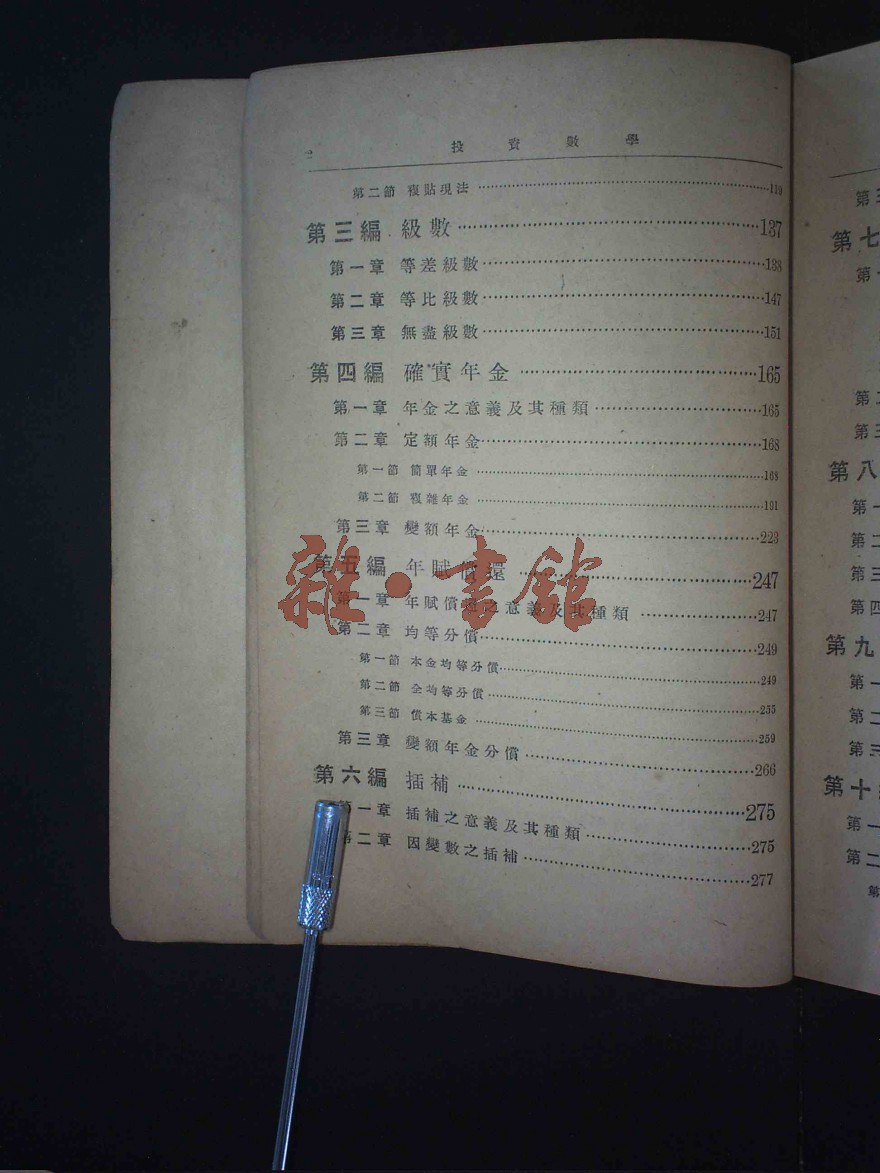 2 投資數學
第二節 複貼現法 ……119
第三編 級數 ……137
第一章 等差級數 ……138
第二章 等比級數 ……147
第三章 無盡級數 ……151
第四編 確實年金 ……165
第一章 年金之意義及其種類 ……165
第二章 定額年金 ……168
第一節 簡單年金 ……168
第二節 複雜年金 ……191
第三章 變額年金 ……223
第五編 年賦償還 ……247
第一章 年賦償還之意義及其種類 ……247
第二章 均等分償 ……249
第一節 本金均等分償 ……249
第二節 全均等分償 ……255
第三節 償本基金 ……259
第三章 變額年金分償 ……266
第六編 插補 ……275
第一章 插補之意義及其種類 ……275
第二章 因變數之插補 ……277
雜·書館
第七
第八
第一
第二
第三
第四
第九
第一
第二
第三
第十
第一
第二